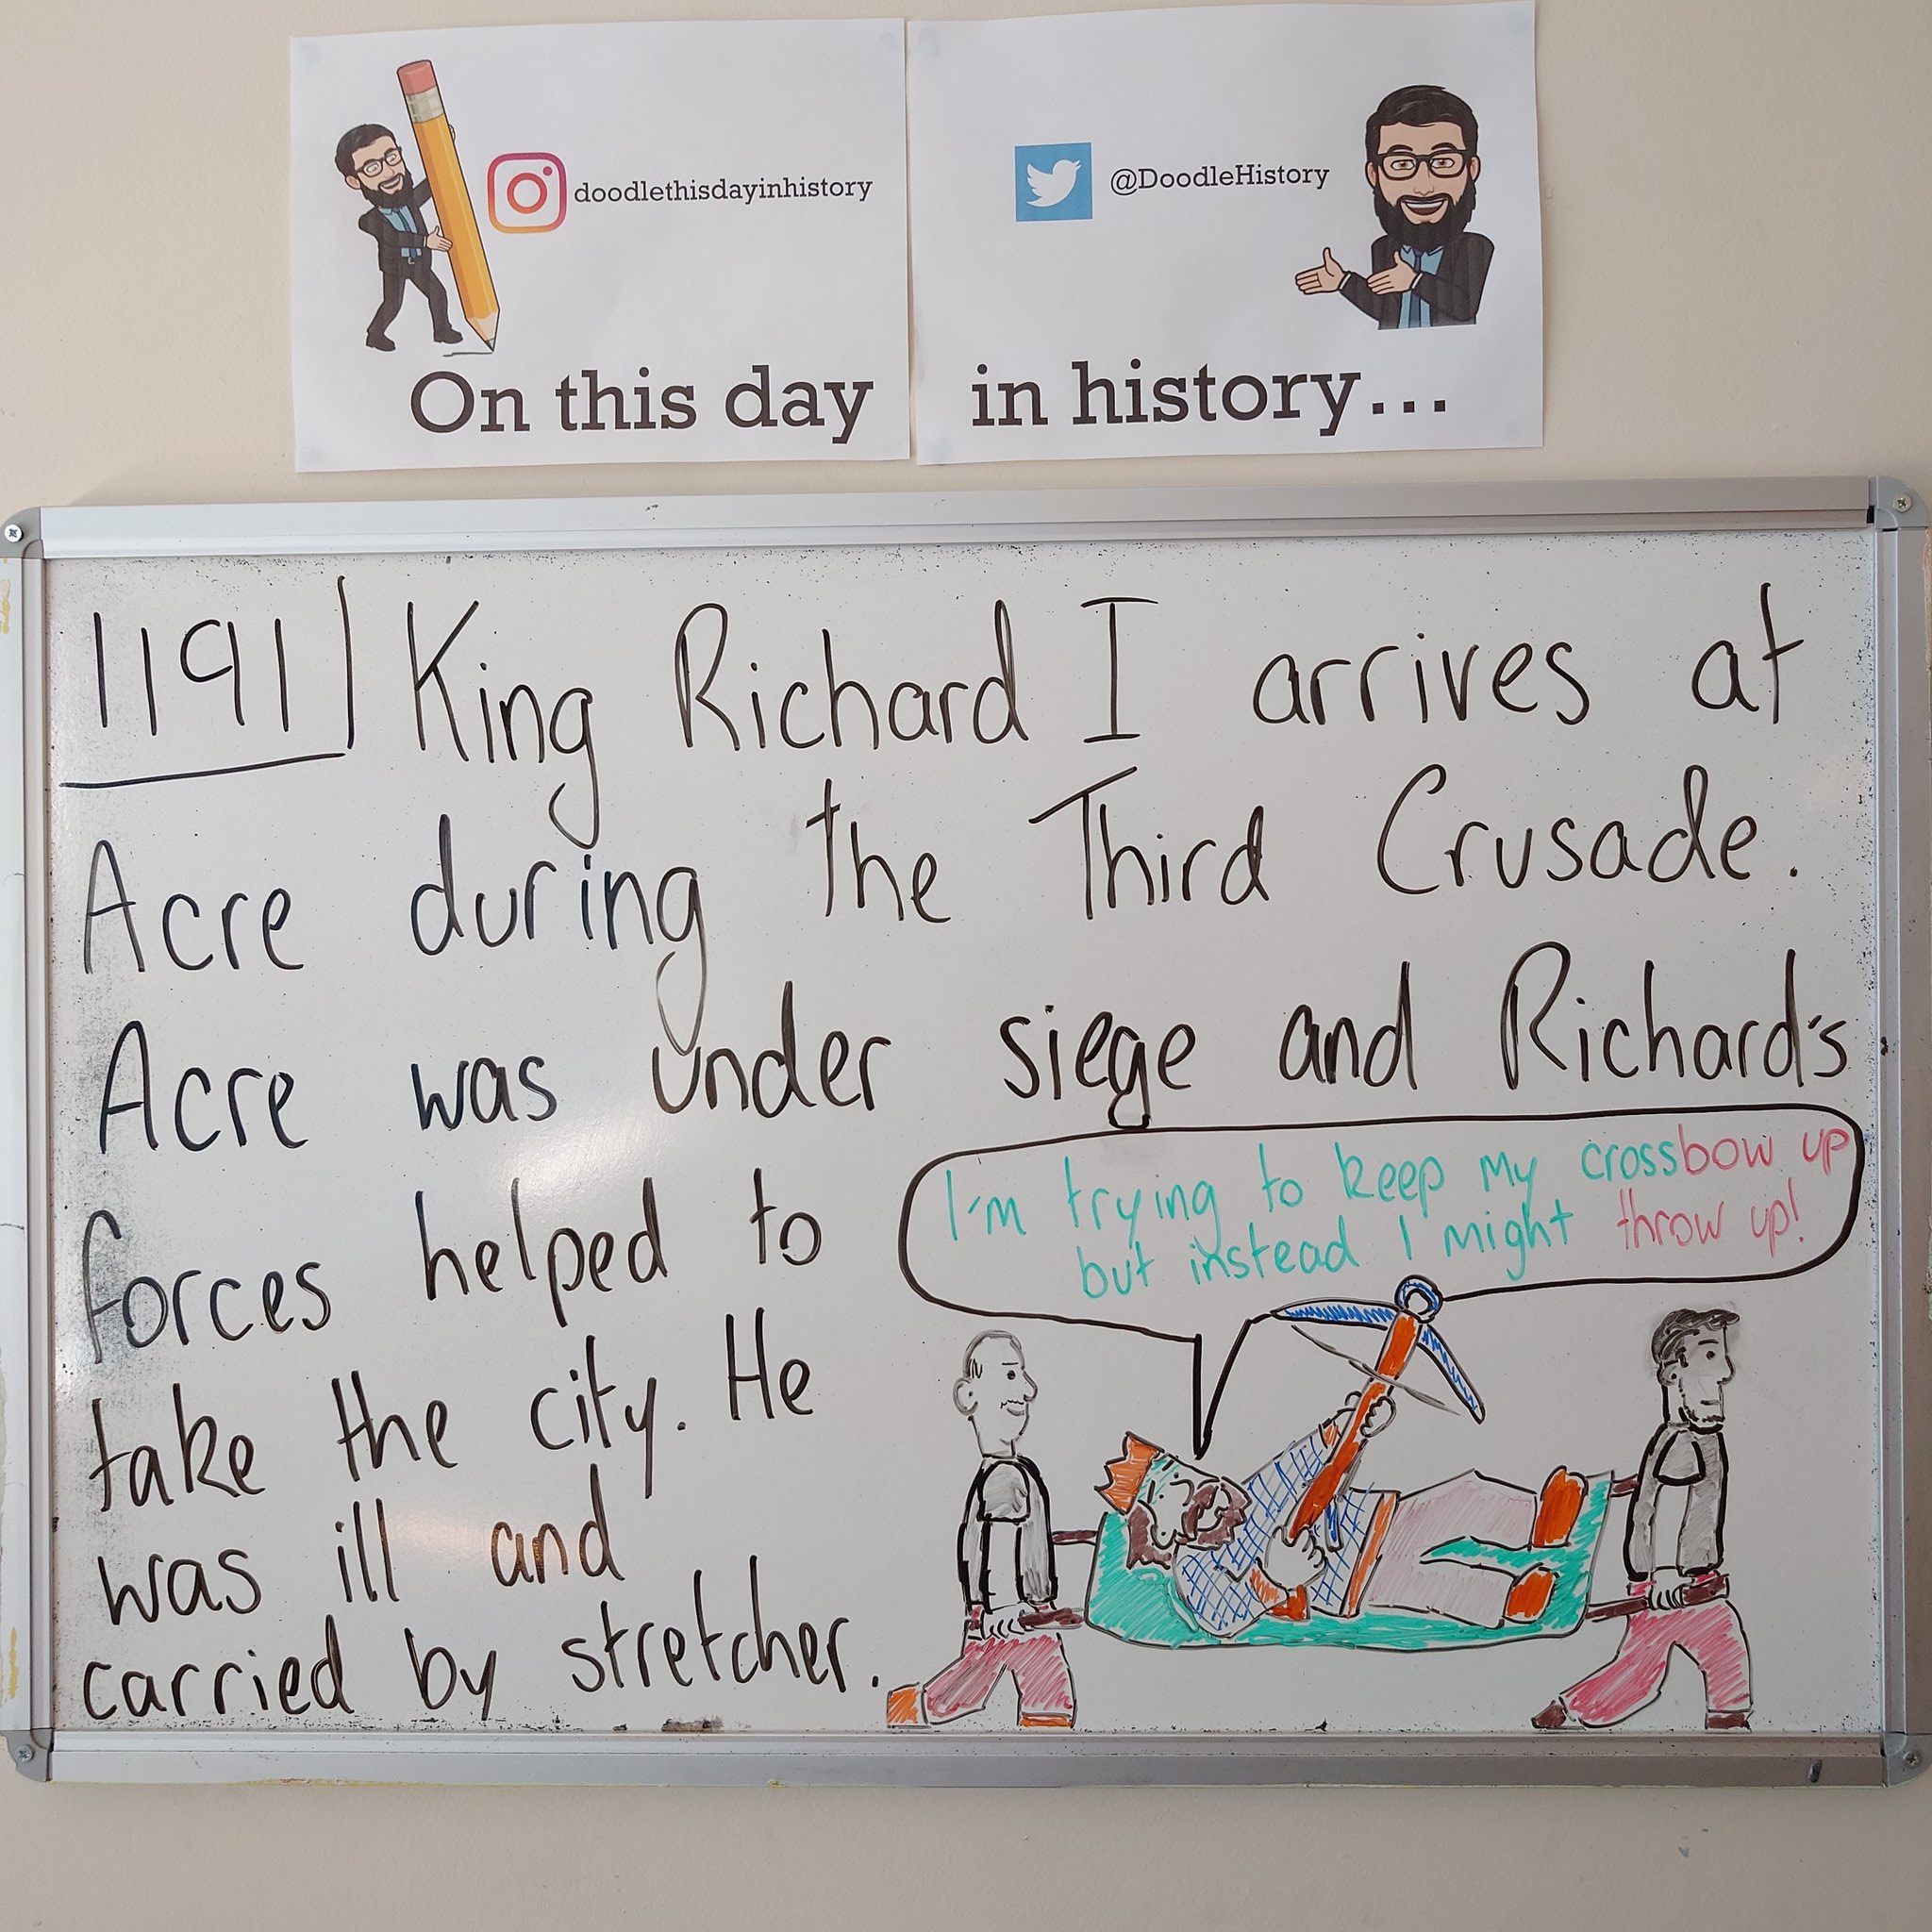 doodlethisdayinhistory
@DoodleHistory
On this day in history...
1191 King Richard I arrives at
Acre during the Third Crusade.
Acre was under siege and Richard's
forces helped to
take the city. He
was ill and
carried by stretcher.
I'm trying to keep my crossbow up
but instead I might throw up!